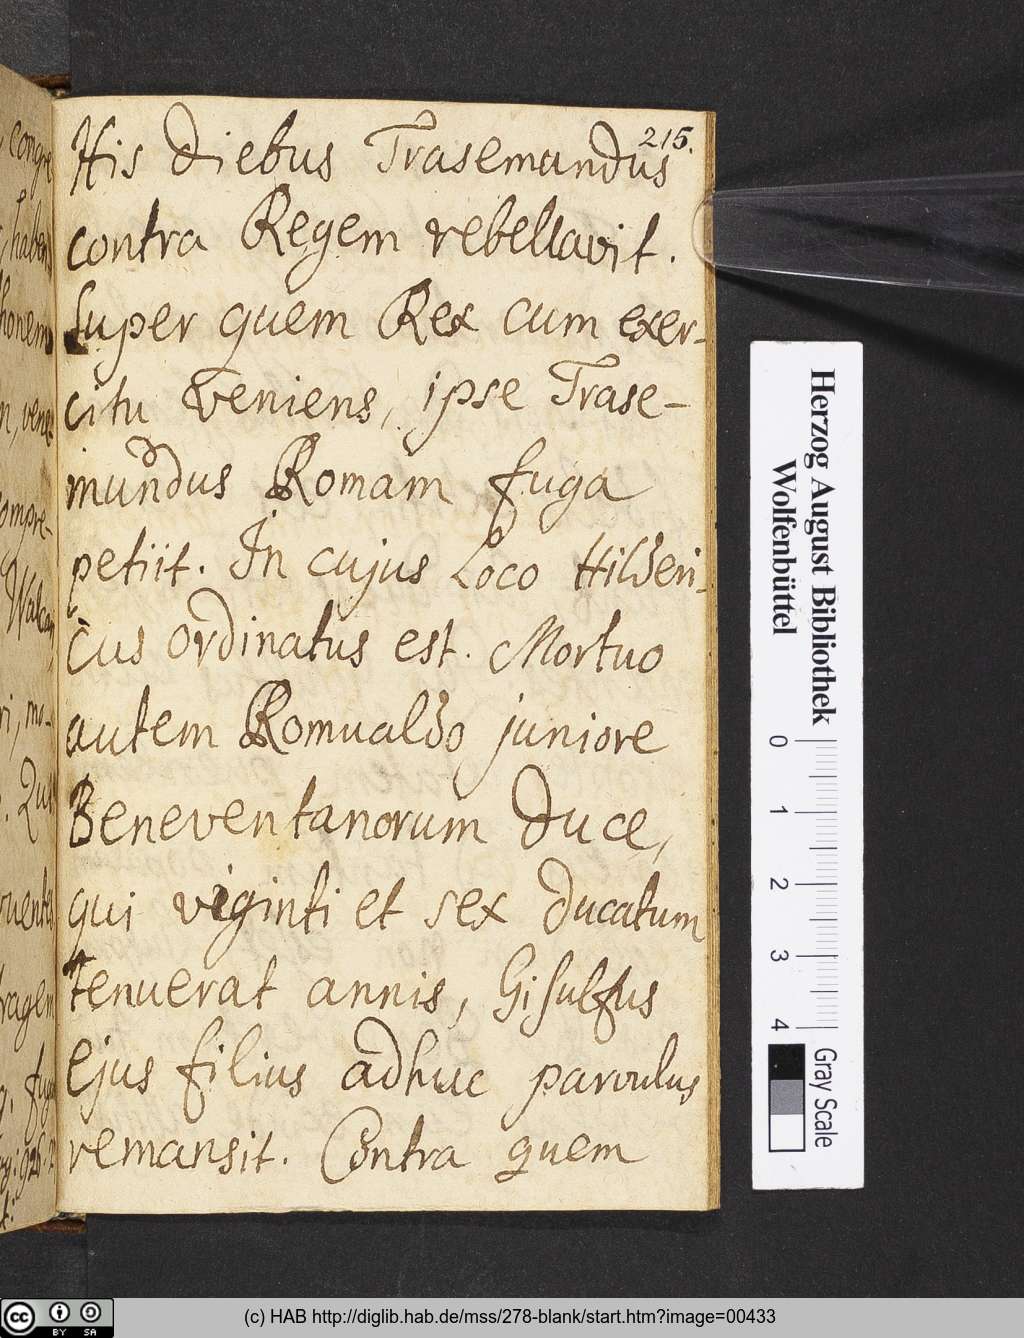 215.
His diebus Trasemundus
contra Regem rebellavit.
Super quem Rex cum exer-
citu veniens, ipse Trase-
mundus Romam fuga
petiit. In cujus Loco Hilderi-
cus ordinatus est. Mortuo
autem Romualdo juniore
Beneventanorum duce,
qui viginti et sex ducatum
tenuerat annis, Gisulfus
ejus filius adhuc parvulus
remansit. Contra quem
Herzog August Bibliothek
Wolfenbüttel
0 1 2 3 4
Gray Scale
(c) HAB http://diglib.hab.de/mss/278-blank/start.htm?image=00433
cc BY SA